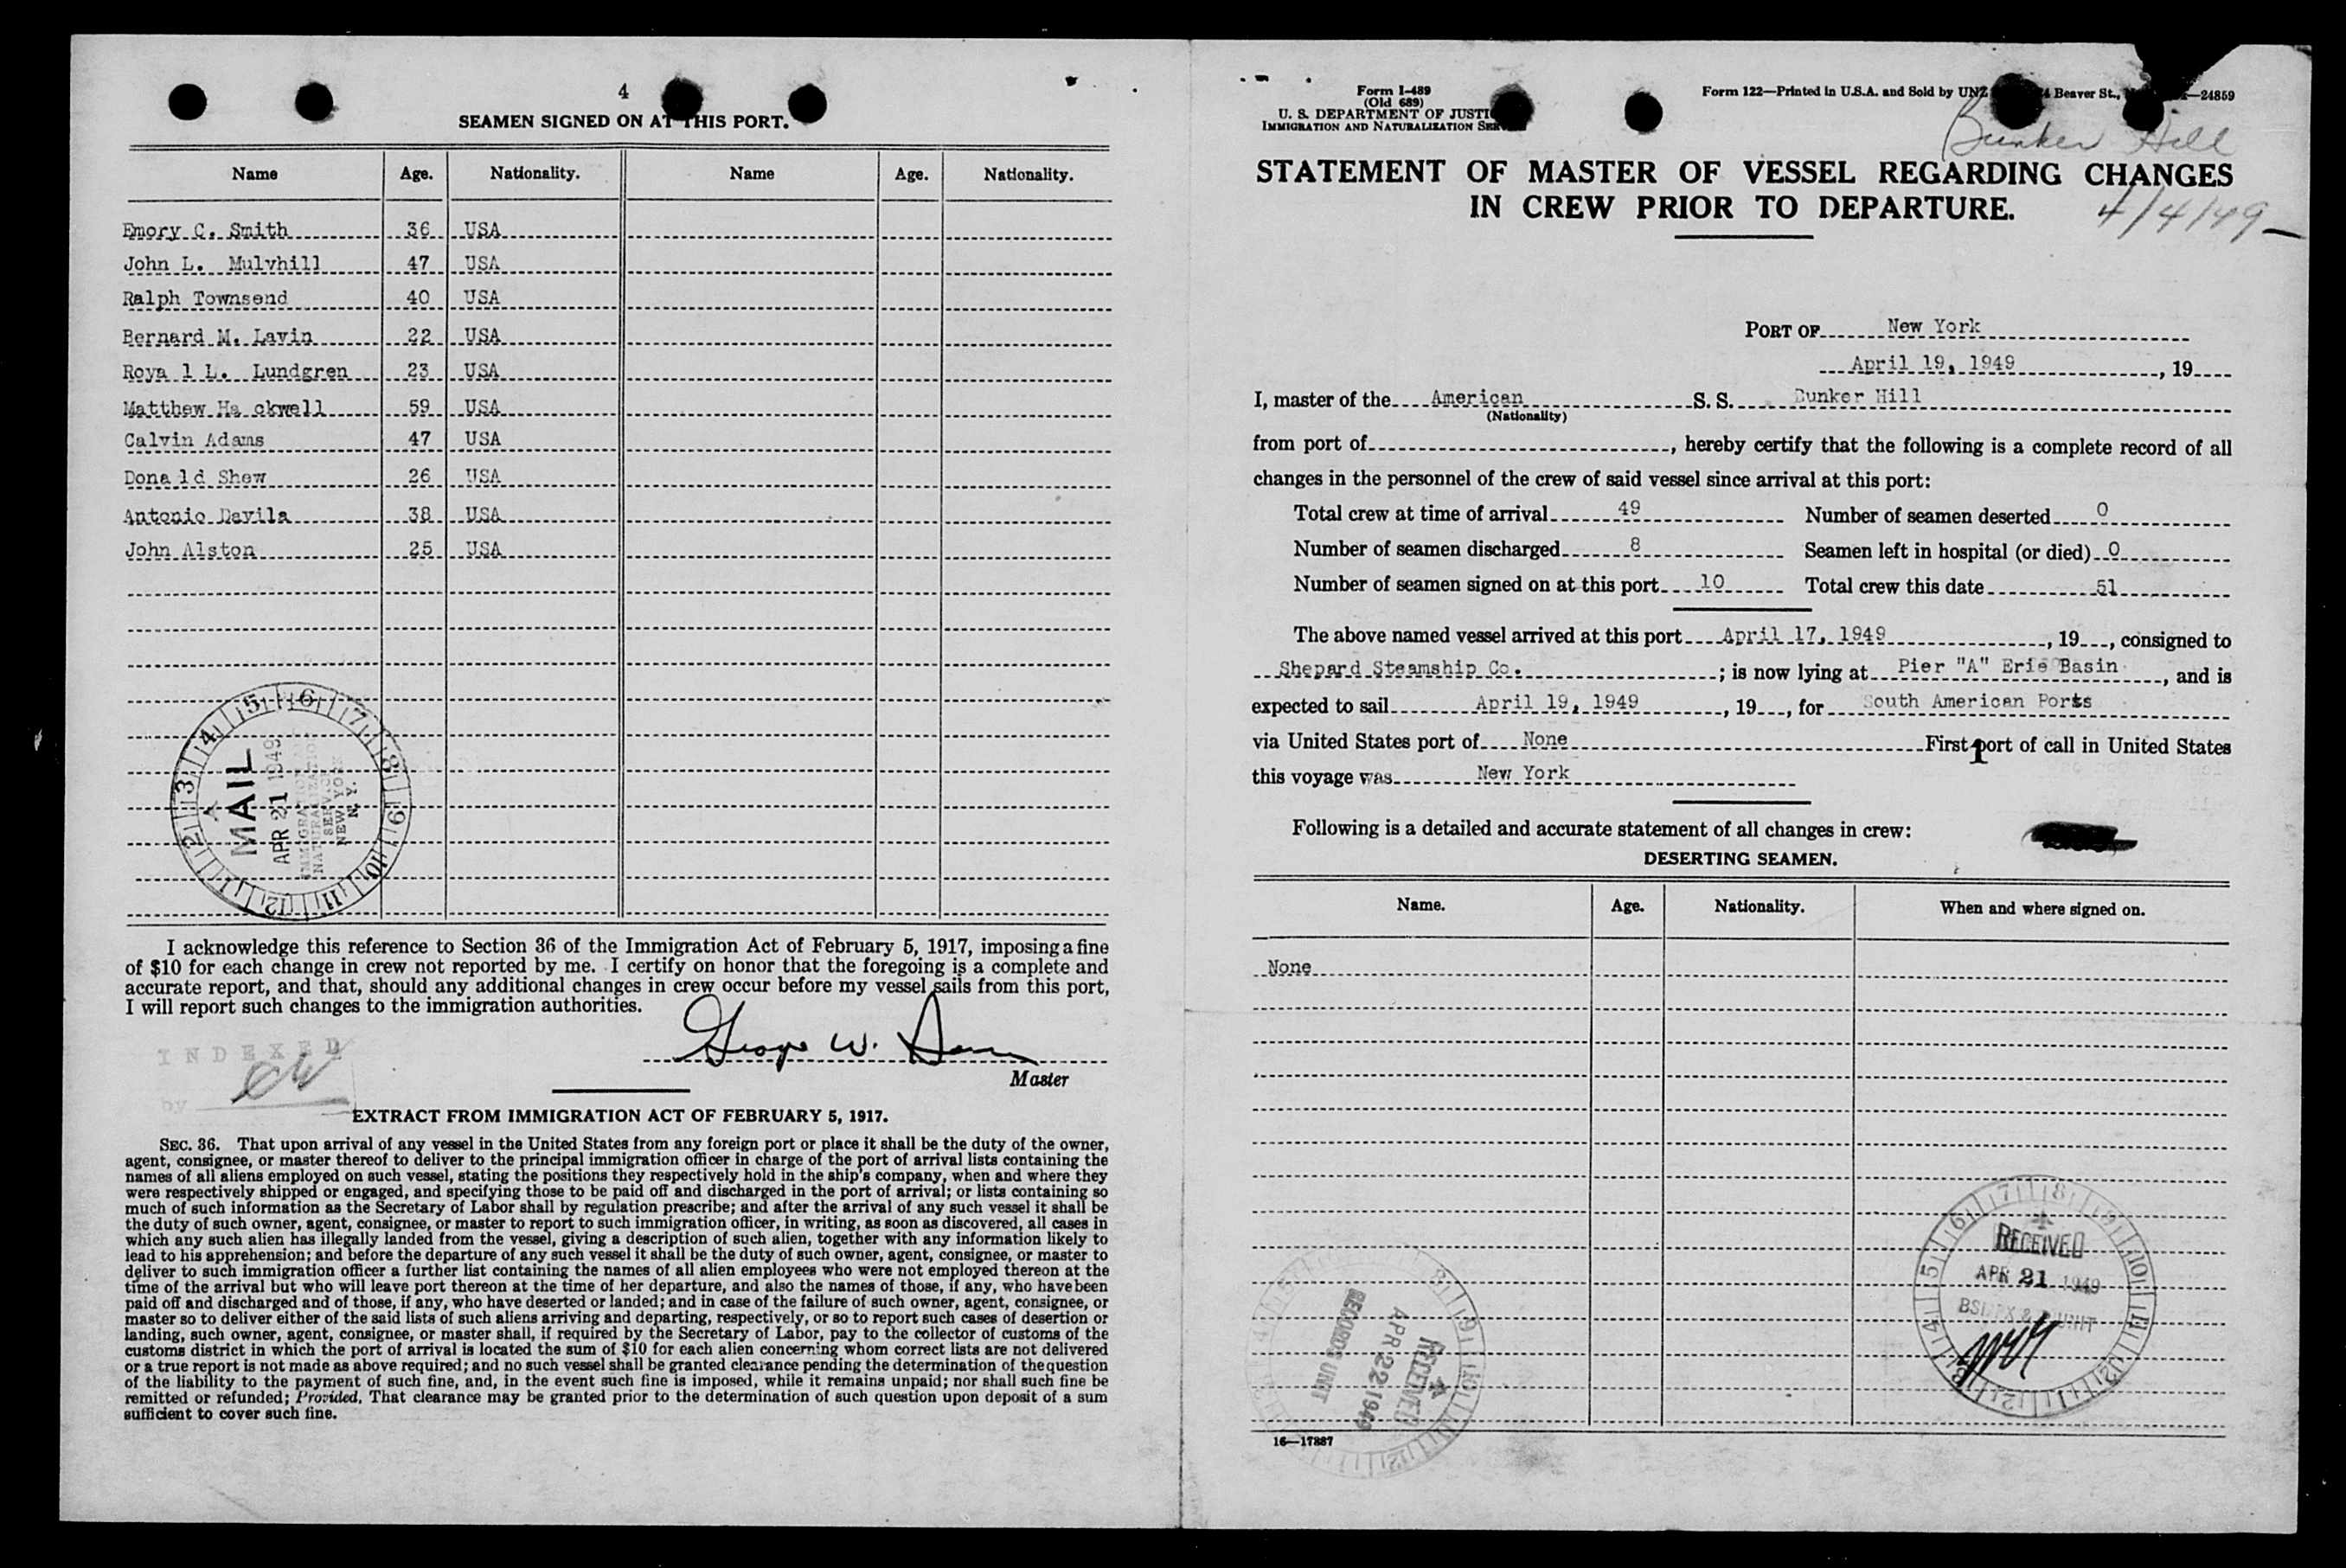 4
SEAMEN SIGNED ON AT THIS PORT.
Name Age. Nationality. Name Age. Nationality.
Emory C. Smith 36 USA
John L. Mulvhill 47 USA
Ralph Townsend 40 USA
Bernard M. Lavin 22 USA
Roya l L. Lundgren 23 USA
Matthew Ha ckwell 59 USA
Calvin Adams 47 USA
Dona ld Shew 26 USA
Antonio Davila 38 USA
John Alston 25 USA
MAIL
APR 21 1949
IMMIGRATION AND
NATURALIZATION
SERVICE
NEW YORK
N. Y.
I acknowledge this reference to Section 36 of the Immigration Act of February 5, 1917, imposing a fine
of $10 for each change in crew not reported by me. I certify on honor that the foregoing is a complete and
accurate report, and that, should any additional changes in crew occur before my vessel sails from this port,
I will report such changes to the immigration authorities.
George W.
Master
INDEXED
by
EXTRACT FROM IMMIGRATION ACT OF FEBRUARY 5, 1917.
SEC. 36. That upon arrival of any vessel in the United States from any foreign port or place it shall be the duty of the owner,
agent, consignee, or master thereof to deliver to the principal immigration officer in charge of the port of arrival lists containing the
names of all aliens employed on such vessel, stating the positions they respectively hold in the ship's company, when and where they
were respectively shipped or engaged, and specifying those to be paid off and discharged in the port of arrival; or lists containing so
much of such information as the Secretary of Labor shall by regulation prescribe; and after the arrival of any such vessel it shall be
the duty of such owner, agent, consignee, or master to report to such immigration officer, in writing, as soon as discovered, all cases in
which any such alien has illegally landed from the vessel, giving a description of such alien, together with any information likely to
lead to his apprehension; and before the departure of any such vessel it shall be the duty of such owner, agent, consignee, or master to
deliver to such immigration officer a further list containing the names of all alien employees who were not employed thereon at the
time of the arrival but who will leave port thereon at the time of her departure, and also the names of those, if any, who have been
paid off and discharged and of those, if any, who have deserted or landed; and in case of the failure of such owner, agent, consignee, or
master so to deliver either of the said lists of such aliens arriving and departing, respectively, or so to report such cases of desertion or
landing, such owner, agent, consignee, or master shall, if required by the Secretary of Labor, pay to the collector of customs of the
customs district in which the port of arrival is located the sum of $10 for each alien concerning whom correct lists are not delivered
or a true report is not made as above required; and no such vessel shall be granted clearance pending the determination of the question
of the liability to the payment of such fine, and, in the event such fine is imposed, while it remains unpaid; nor shall such fine be
remitted or refunded; Provided, That clearance may be granted prior to the determination of such question upon deposit of a sum
sufficient to cover such fine.
Form I-489
(Old 689)
U. S. DEPARTMENT OF JUSTI
IMMIGRATION AND NATURALIZATION SER
Form 122—Printed in U.S.A. and Sold by UNZ Beaver St., —24859
Bunker Hill
STATEMENT OF MASTER OF VESSEL REGARDING CHANGES
IN CREW PRIOR TO DEPARTURE.
4/4/49
PORT OF New York
April 19, 1949, 19
I, master of the American S. S. Bunker Hill
(Nationality)
from port of , hereby certify that the following is a complete record of all
changes in the personnel of the crew of said vessel since arrival at this port:
Total crew at time of arrival 49 Number of seamen deserted 0
Number of seamen discharged 8 Seamen left in hospital (or died) 0
Number of seamen signed on at this port 10 Total crew this date 51
The above named vessel arrived at this port April 17, 1949, 19 , consigned to
Shepard Steamship Co. ; is now lying at Pier "A" Erie Basin, and is
expected to sail April 19, 1949, 19 , for South American Ports
via United States port of None First port of call in United States
this voyage was New York
Following is a detailed and accurate statement of all changes in crew:
DESERTING SEAMEN.
Name. Age. Nationality. When and where signed on.
None
RECEIVED
APR 21 1949
UNIT
RECEIVED
APR 22 1949
RECORDS UNIT
16—17887